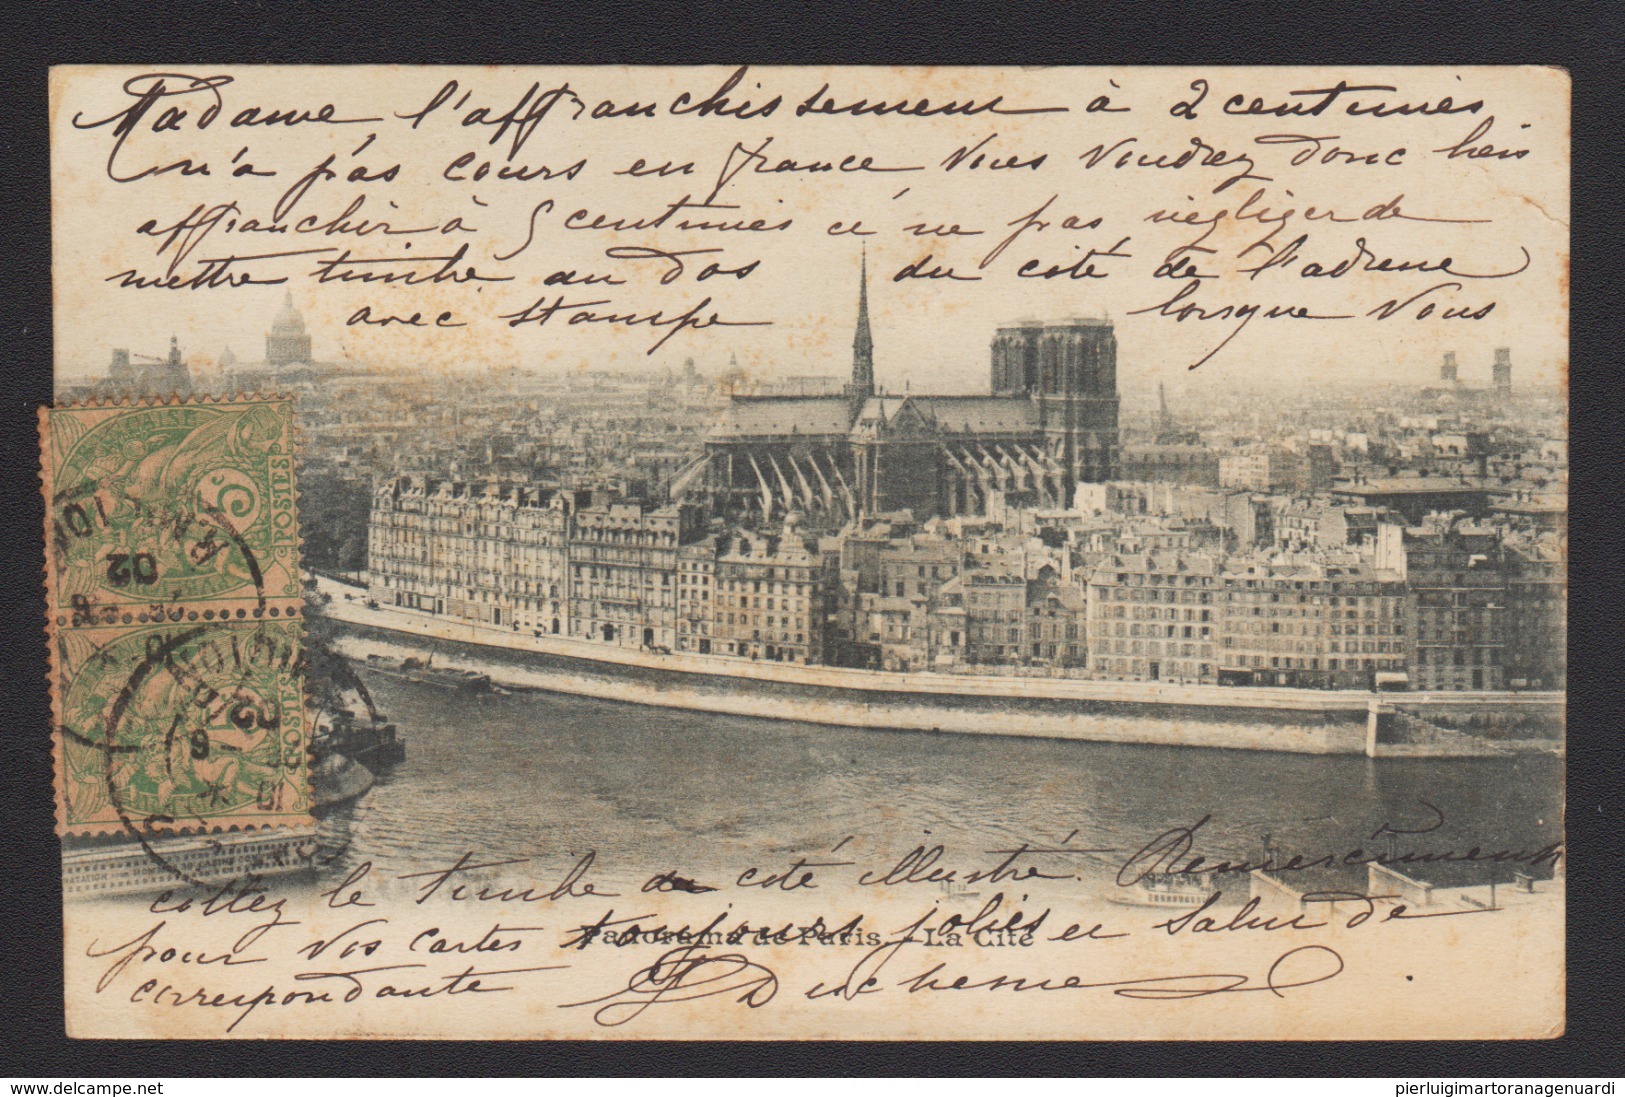 Madame, l'affranchissement à 2 centimes
n'a pas cours en france Vous Voudrez donc bien
affranchir à 5 centimes et ne pas négliger de
mettre timbre au dos du côté de l'adresse
avec stampe lorsque Vous
POSTES
02
POSTES
02
collez le timbre du côté illustré. Remerciements
pour vos cartes toujours jolies et Salut de
Panorama de Paris. - La Cité
correspondante Duchesne
www.delcampe.net
pierluigimartoranagenuardi